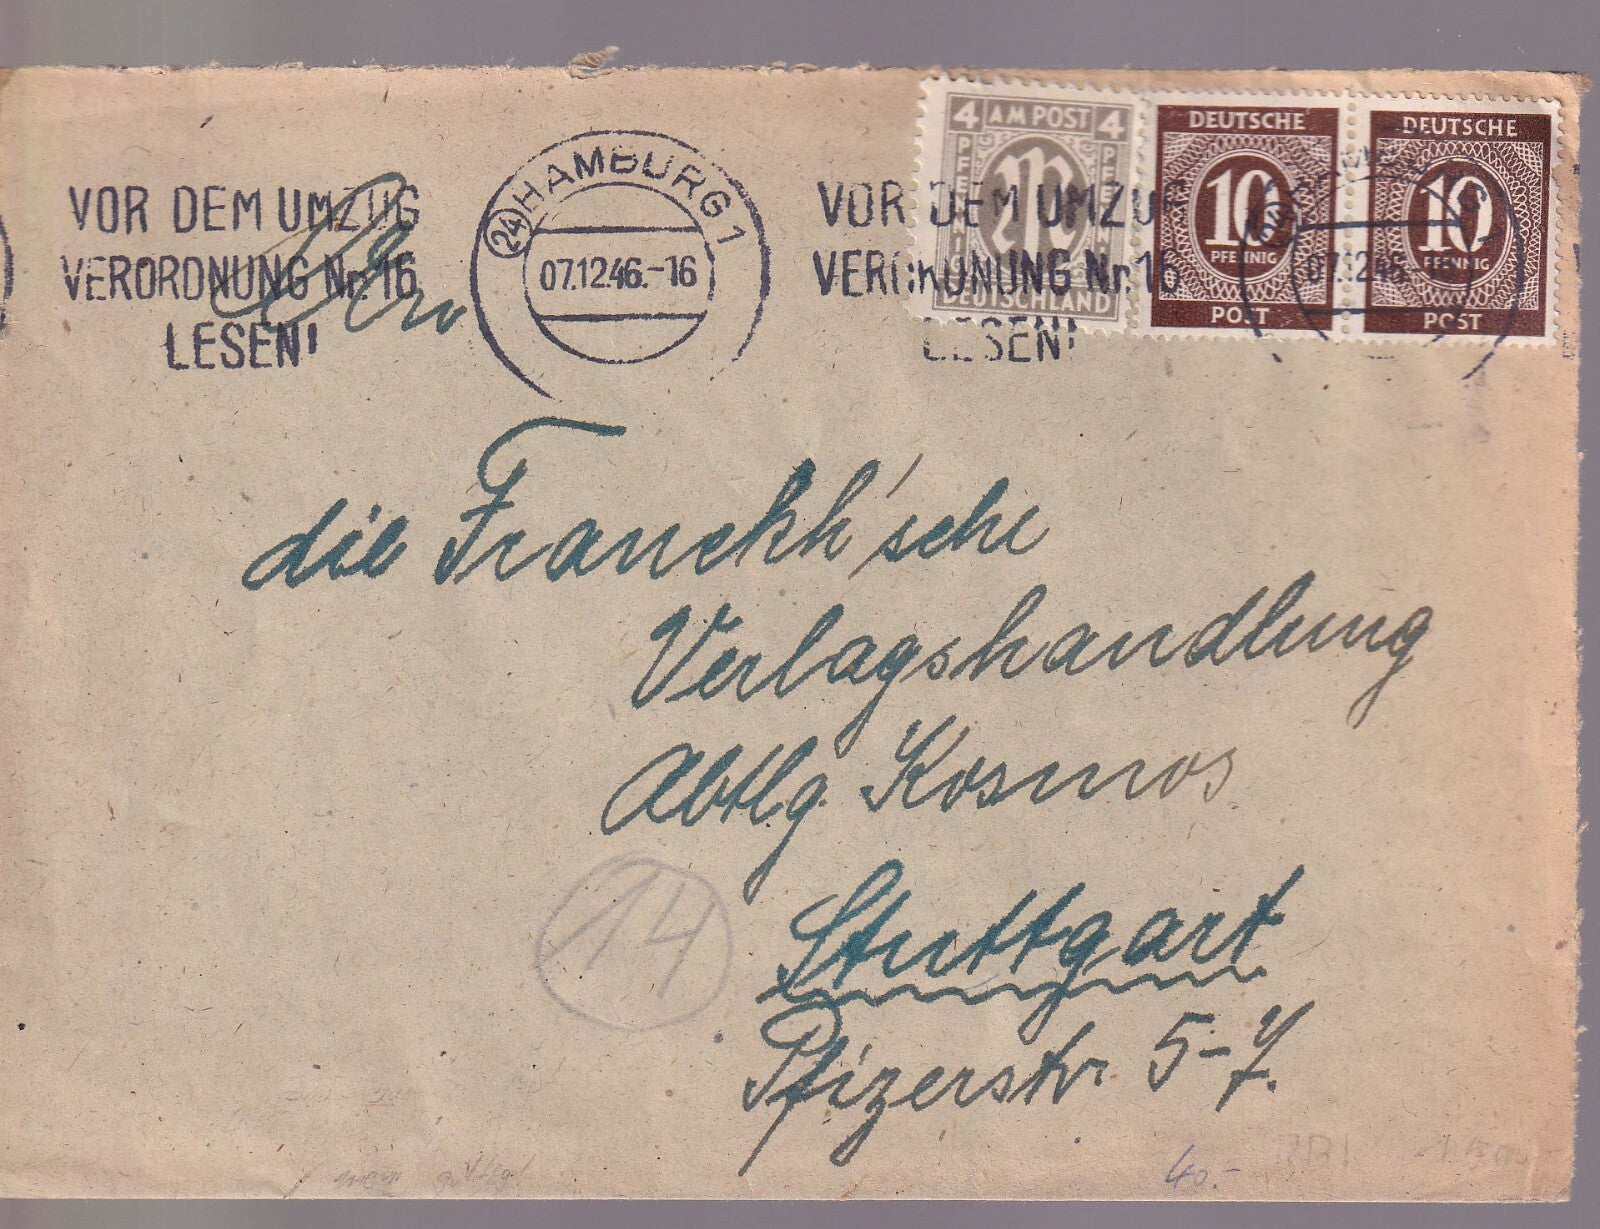 VOR DEM UMZUG
VERORDNUNG Nr. 16
LESEN!
(24) HAMBURG 1
07.12.46.-16
VOR DEM UMZUG
VERORDNUNG Nr. 16
LESEN!
4 AM POST 4
PFENNIG
PFENNIG
DEUTSCHLAND
DEUTSCHE
10
PFENNIG
POST
DEUTSCHE
10
PFENNIG
POST
07.12.46.-16
die Franckh'sche
Verlagshandlung
Abtlg. Kosmos
14
Stuttgart
Pfizerstr. 5-7.
40.-